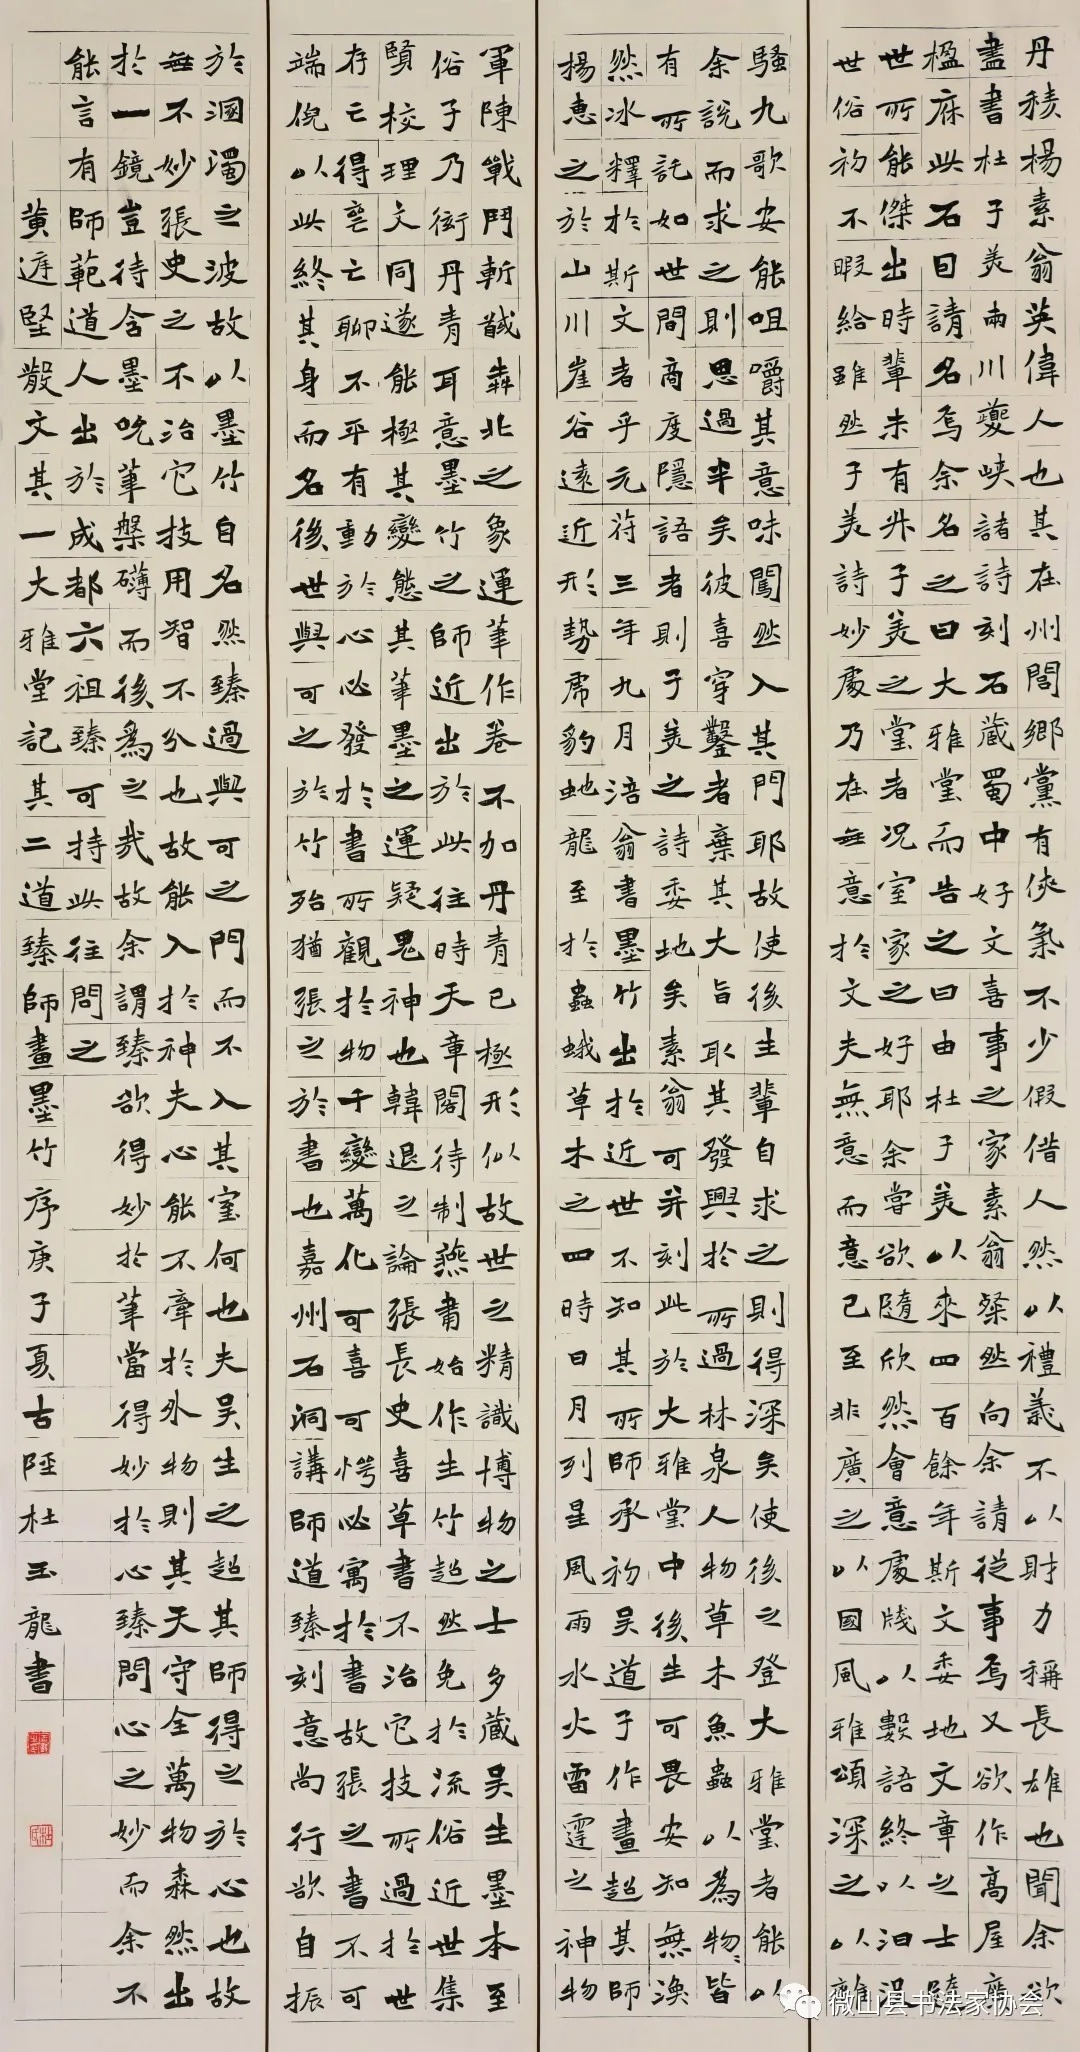 丹稜楊素翁英偉人也其在州閭鄉黨有俠氣不少假借人然以禮義不以財力稱長雄也聞余欲
盡書杜子美兩川夔峽諸詩刻石藏蜀中好文喜事之家素翁粲然向余請從事焉又欲作高屋廣
楹庥此石因請名焉余名之曰大雅堂而告之曰由杜子美以來四百餘年斯文委地文章之士隨
世所能傑出時輩未有升子美之堂者況室家之好耶余嘗欲隨欣然會意處牋以數語終以汩沒
世俗初不暇給雖然子美詩妙處乃在無意於文夫無意而意已至非廣之以國風雅頌深之以離
騷九歌安能咀嚼其意味闖然入其門耶故使後生輩自求之則得深矣使後之登大雅堂者能以
余說而求之則思過半矣彼喜穿鑿者棄其大旨取其發興於所過林泉人物草木魚蟲以為物〻皆
有所託如世間商度隱語者則子美之詩委地矣素翁可并刻此於大雅堂中後生可畏安知無渙
然冰釋於斯文者乎元符三年九月涪翁書墨竹出於近世不知其所師承初吳道子作畫超其師
揚惠之於山川崖谷遠近形勢虎豹虵龍至於蟲蛾草木之四時日月列星風雨水火雷霆之神物
軍陳戰鬥斬馘犇北之象運筆作卷不加丹青已極形似故世之精識博物之士多藏吳生墨本至
俗子乃衒丹青耳意墨竹之師近出於此往時天章閣待制燕肅始作生竹超然免於流俗近世集
賢校理文同遂能極其變態其筆墨之運疑鬼神也韓退之論張長史喜草書不治它技所過於世
存亡得喪亡聊不平有動於心必發於書所觀於物千變萬化可喜可愕必寓於書故張之書不可
端倪以此終其身而名後世與可之於竹殆猶張之於書也嘉州石洞講師道臻刻意尚行欲自振
於溷濁之波故以墨竹自名然臻過與可之門而不入其室何也夫吳生之超其師得之於心也故
無不妙張史之不治它技用智不分也故能入於神夫心能不牽於外物則其天守全萬物森然出
於一鏡豈待含墨吮筆槃礴而後為之哉故余謂臻欲得妙於筆當得妙於心臻問心之妙而余不
能言有師範道人出於成都六祖臻可持此往問之
黃庭堅散文其一大雅堂記其二道臻師畫墨竹序庚子夏古陘杜玉龍書
微山县书法家协会